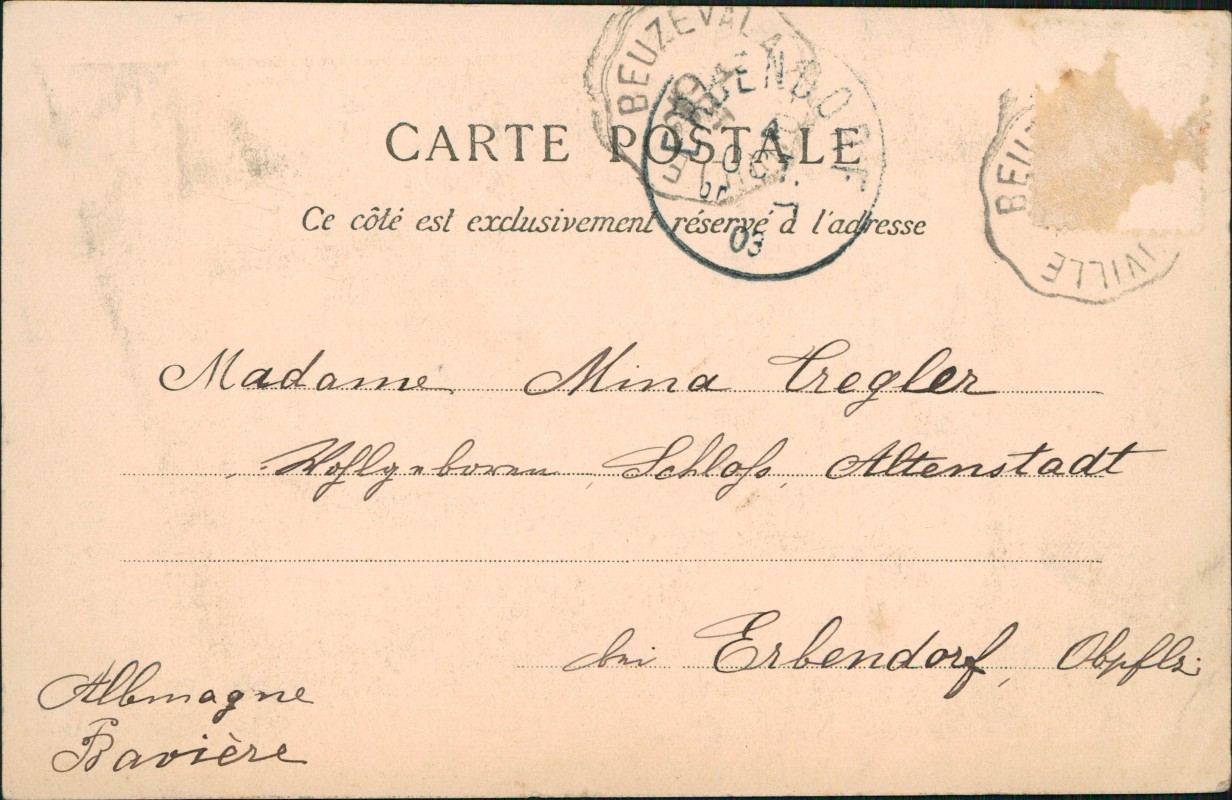 BEUZEVAL A
CARTE POSTALE
Ce côté est exclusivement réservé à l'adresse
ERBENDORF
7
03
VILLE
Madame Mina Tregler
Wohlgeboren, Schloß, Altenstadt
bei Erbendorf, Obpflz.
Allemagne
Bavière